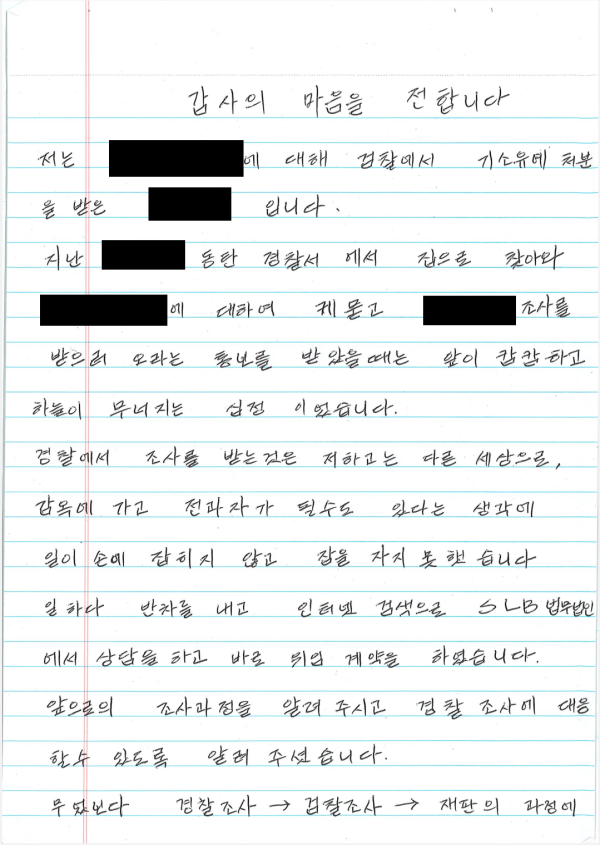 감사의 마음을 전합니다
저는 에 대해 검찰에서 기소유예 처분
을 받은 입니다.
지난 동탄 경찰서 에서 집으로 찾아와
에 대하여 케묻고 조사를
받으러 오라는 통보를 받았을때는 앞이 캄캄하고
하늘이 무너지는 심정 이었습니다.
경찰에서 조사를 받는것은 저하고는 다른 세상으로,
감옥에 가고 전과자가 될수도 있다는 생각에
일이 손에 잡히지 않고 잠을 자지 못했 습니다
일하다 반차를 내고 인터넷 검색으로 SLB 법무법인
에서 상담을 하고 바로 위임 계약을 하였습니다.
앞으로의 조사과정을 알려 주시고 경찰 조사에 대응
할수 있도록 알려 주셨습니다.
무엇보다 경찰조사 → 검찰조사 → 재판의 과정에